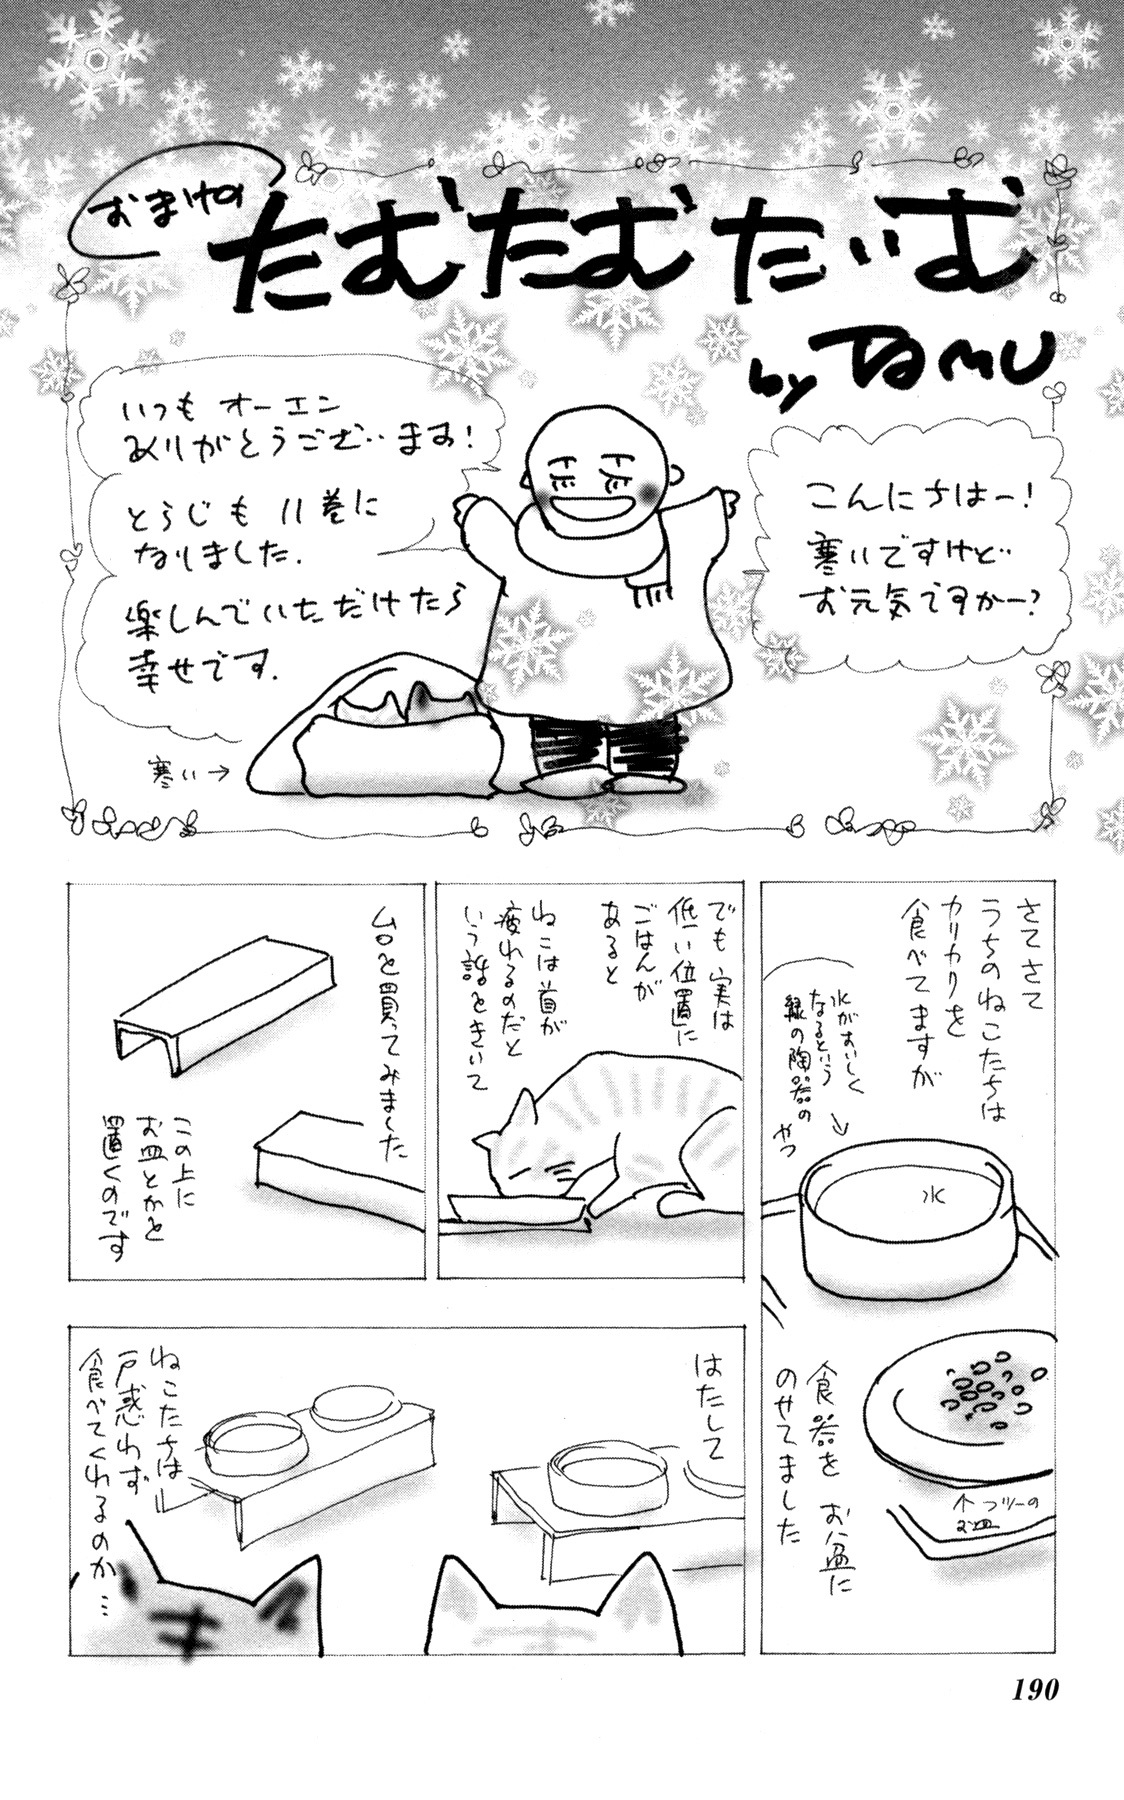 おまけの
たむたむたいむ
by TAMU
こんにちはー!
寒いですけど
お元気ですかー?
いつもオーエン
ありがとうございます!
とらじも11巻に
なりました.
楽しんでいただけたら
幸せです.
寒い→
さてさて
うちのねこたちは
カリカリを
食べてますが
水がおいしく
なるという
緑の陶器の
やつ
水
フツーの
お皿
食器を お盆に
のせてました
でも 実は
低い位置に
ごはんが
あると
ねこは首が
疲れるのだと
いう話をきいて
台を買ってみました
この上に
お皿とかを
置くのです
はたして
ねこたちは
戸惑わず
食べてくれるのか…
190